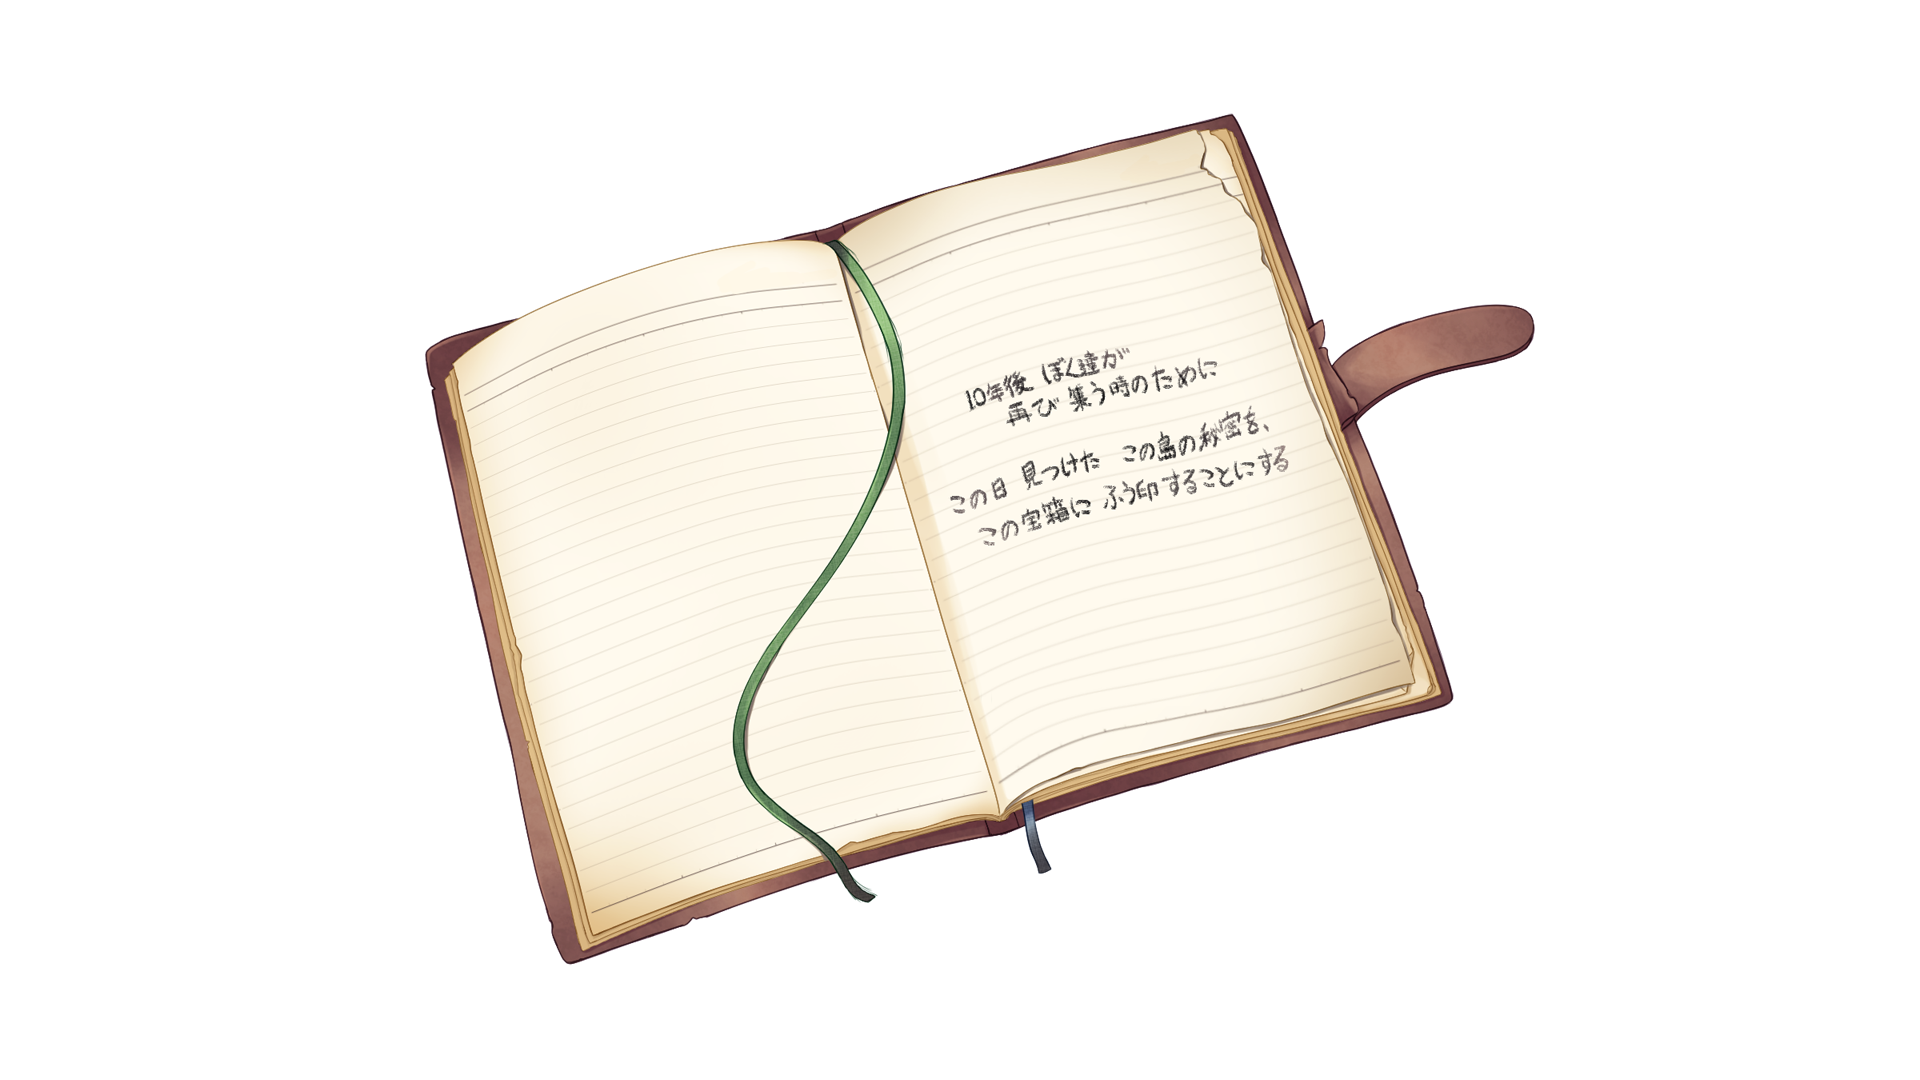 10年後 ぼく達が
再び 集う時のために
この日 見つけた この島の秘密を、
この宝箱に ふう印することにする